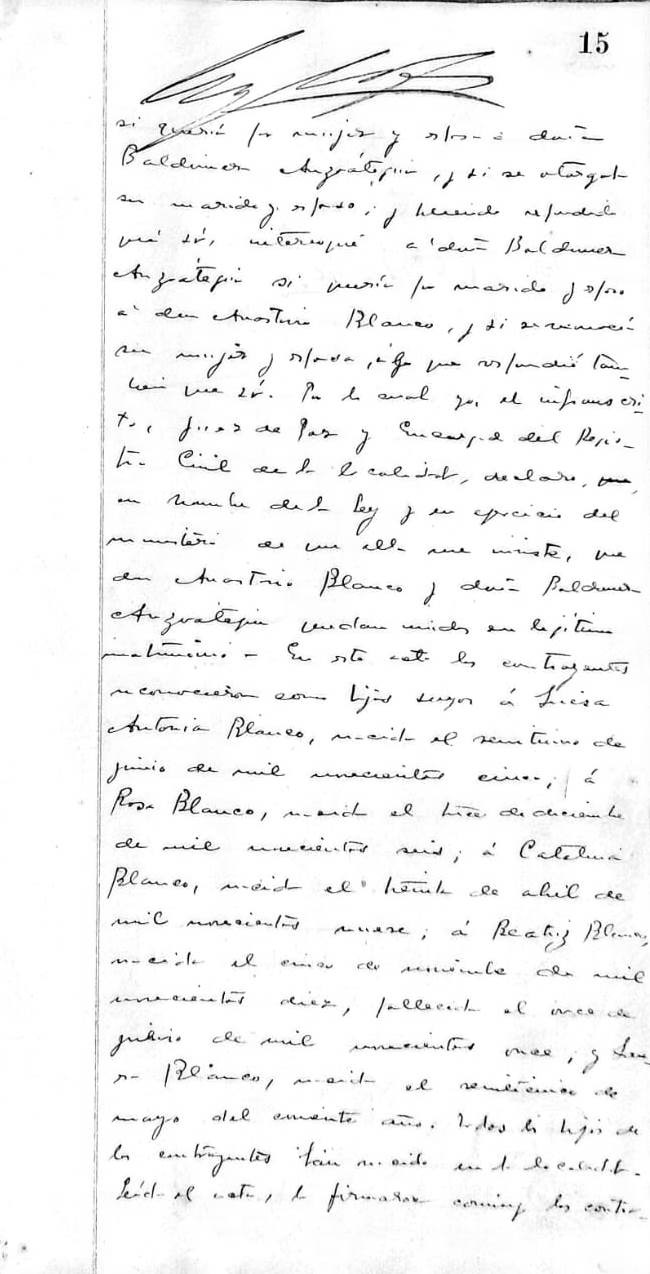 15
si quería por mujer y esposa á doña
Baldomera Anzoátegui, y si se otorgaba
su marido y esposo; y habiendo respondido
que sí, interrogué a doña Baldomera
Anzoátegui si quería por marido y esposo
á don Anastasio Blanco, y si se reconocía
su mujer y esposa, á lo que respondió tam-
bién que sí. Por lo cual yo, el infrascri-
to, Juez de Paz y Encargado del Regis-
tro Civil de la localidad, declaro, que,
en nombre de la Ley y en ejercicio del
ministerio de que ella me inviste, que
don Anastasio Blanco y doña Baldomera
Anzoátegui quedan unidos en legítimo
matrimonio - En este acto los contrayentes
reconocieron como hijos suyos á Luisa
Antonia Blanco, nacida el veintiuno de
junio de mil novecientos cinco; á
Rosa Blanco, nacida el trece de diciembre
de mil novecientos seis; á Catalina
Blanco, nacida el treinta de abril de
mil novecientos nueve; á Beatriz Blanco,
nacida el cinco de noviembre de mil
novecientos diez, fallecida el once de
de mil novecientos once; y
Blanco, nacida el veinticinco de
mayo del corriente año. Todos los hijos de
los contrayentes han nacido en la localidad.
Leída el acta, la firmaron conmigo los contra-